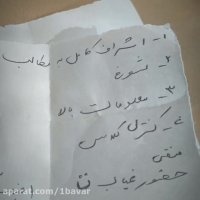 ۱- اشراف کامل به مطالب
۲- تسوع
۳- معلومات بالا
۴- کنترل کلاس
منفی
حضور غیاب
aparat.com/1bavar